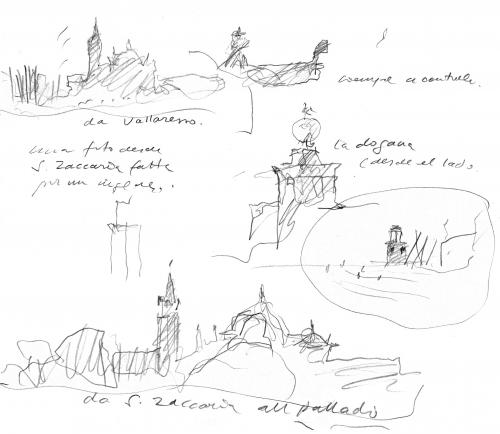 da Vallaresso.
sempre a controluce.
una foto desde
S. Zaccaria fatta
per un
la dogana
(desde el lado.
da S. Zaccaria all palladio